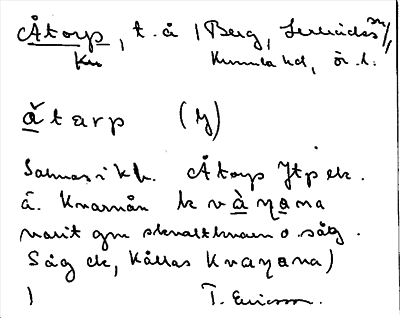 Åtorp, t. å | Berg, Lerbäcks sn,
Ku Kumla hd, ör. l.
åtarp (y)
Salnas i kb. Åtorp Jtp ek.
å. Kvarnån kvànana
varit gm skvaltkvarn o. såg.
Såg ek, Kållas Kvanana)
| T. Ericsson.